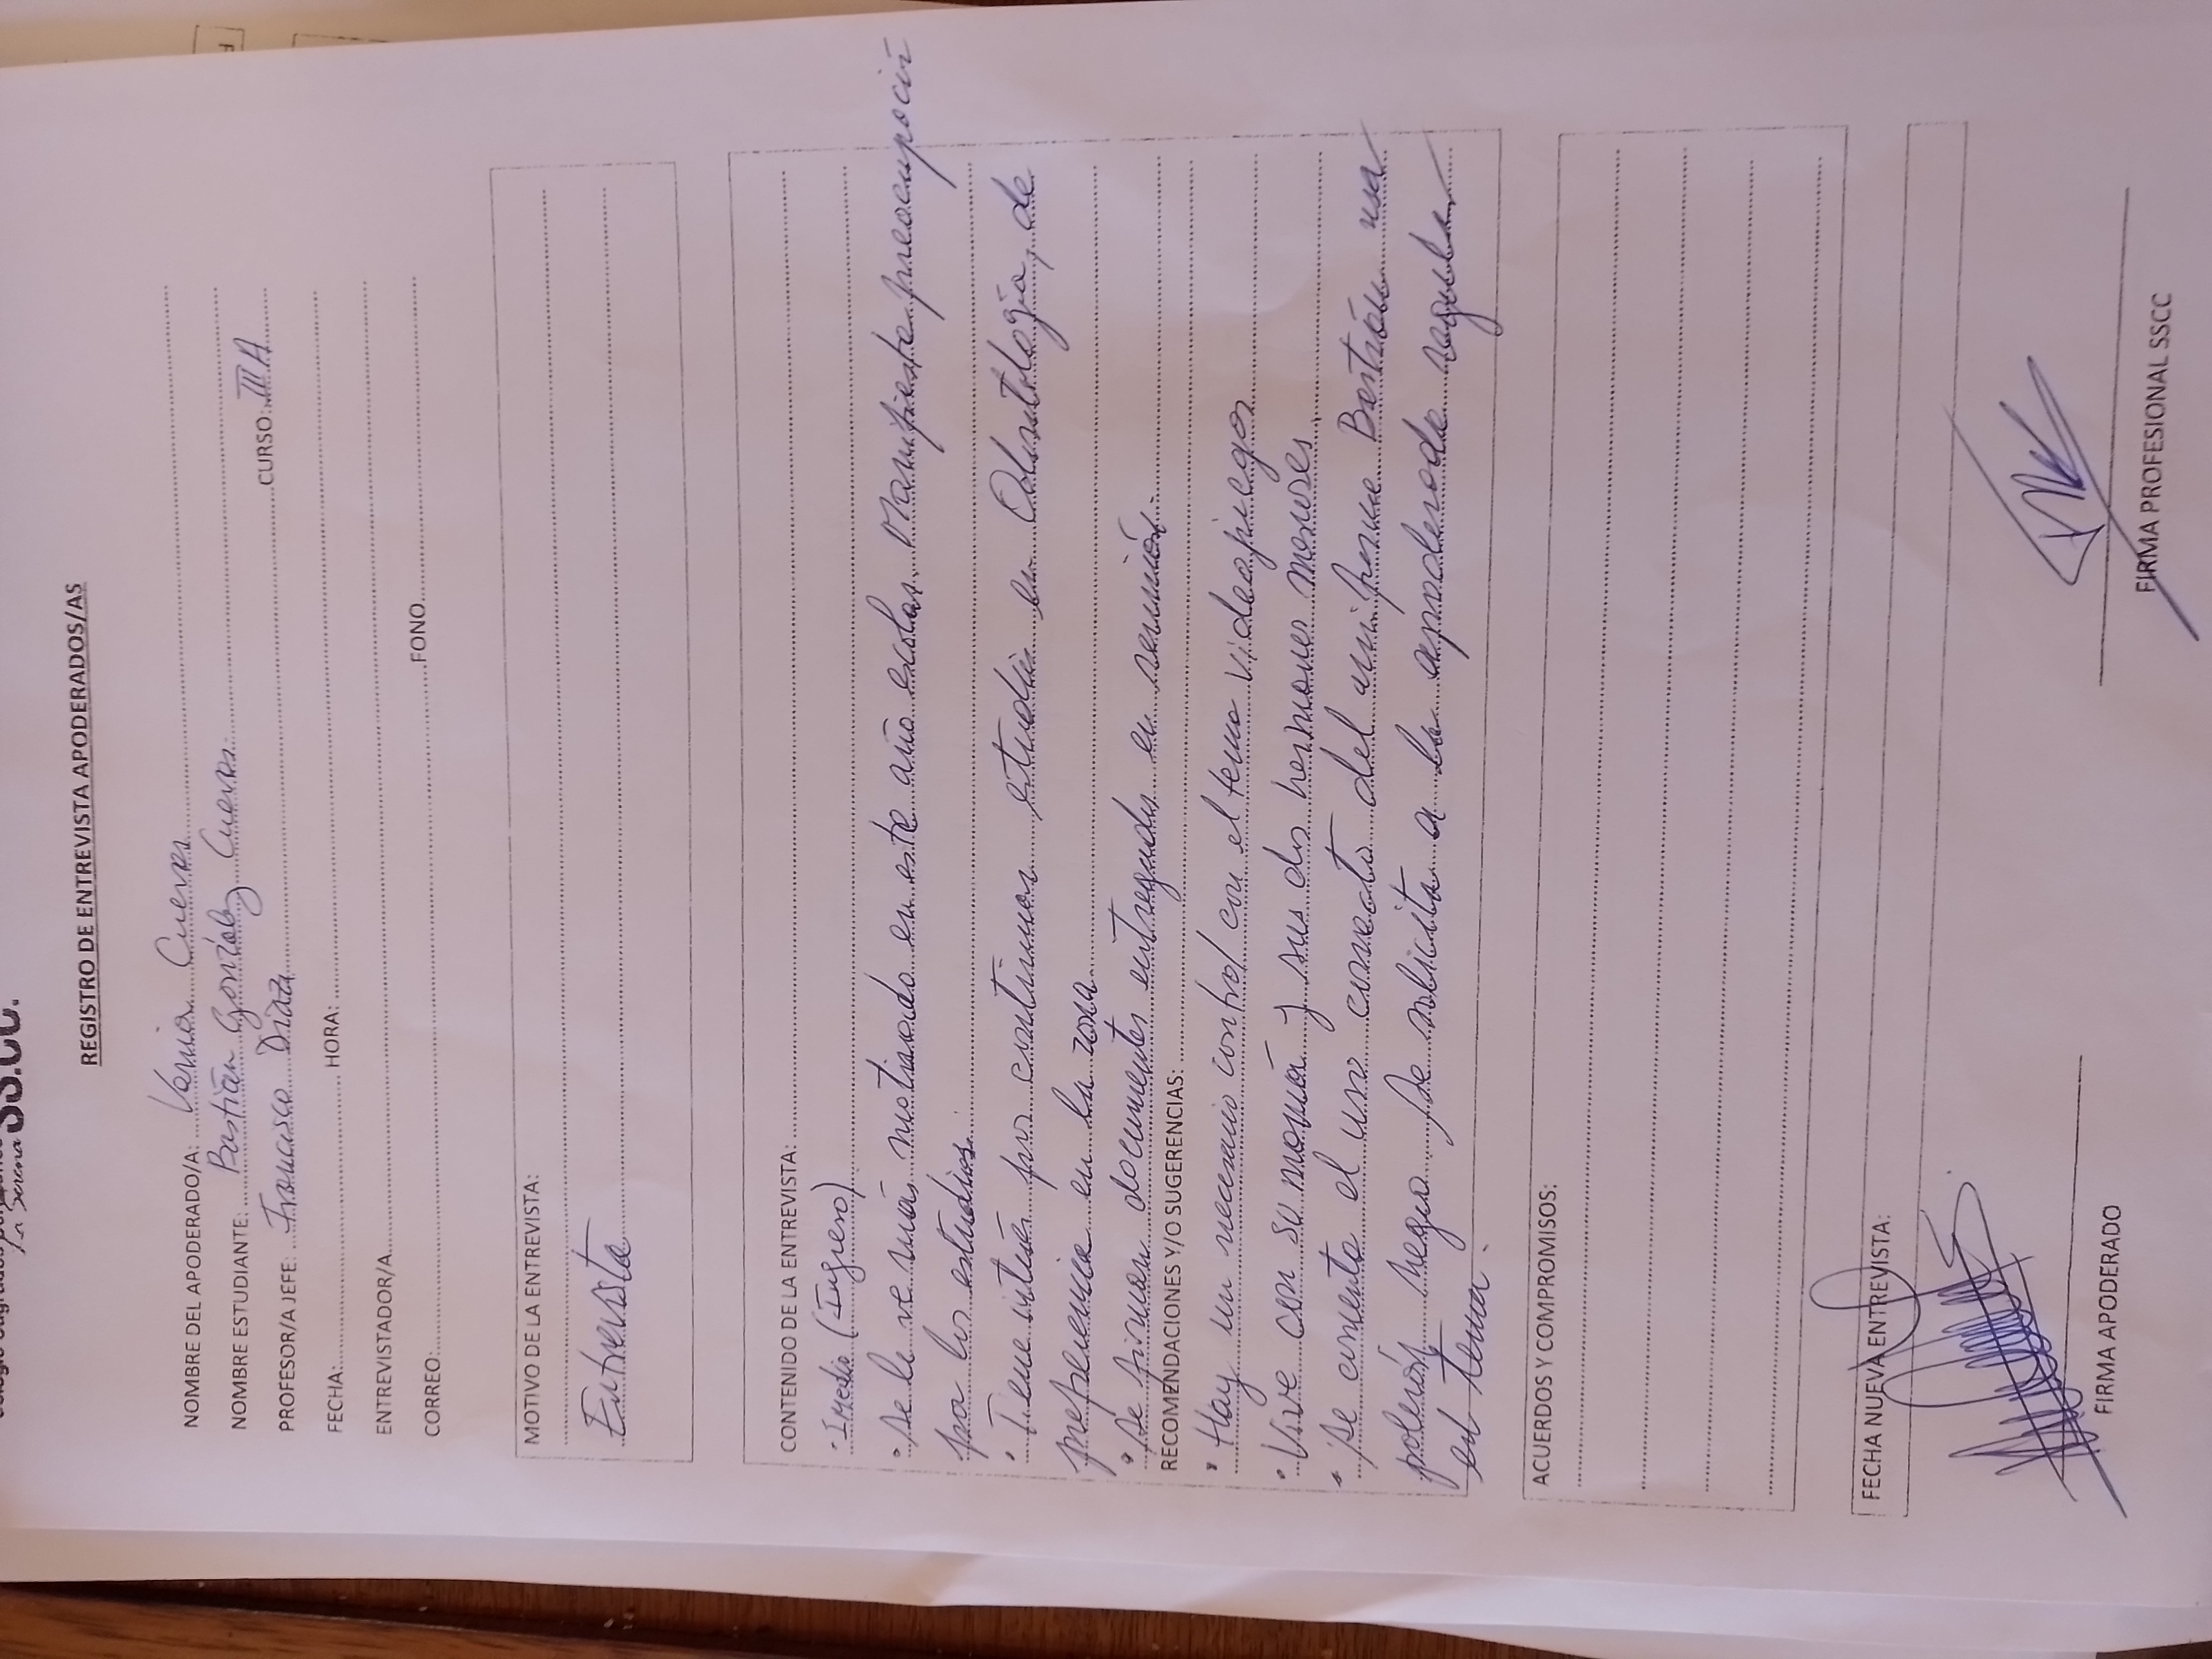 SS.CC.
La Serena
REGISTRO DE ENTREVISTA APODERADOS/AS
NOMBRE DEL APODERADO/A: Vania Cuevas
NOMBRE ESTUDIANTE: Bastián González Cuevas
PROFESOR/A JEFE: Francisco Díaz CURSO: III A
FECHA: HORA:
ENTREVISTADOR/A
CORREO: FONO
MOTIVO DE LA ENTREVISTA:
Entrevista
CONTENIDO DE LA ENTREVISTA:
• I Medio (Ingreso)
• Se le ve más motivado en este año escolar. Manifiesta preocupación
por los estudios.
• Tiene interés por continuar estudios en Odontología, de
preferencia en la zona
• Se firman documentos entregados en reunión.
RECOMENDACIONES Y/O SUGERENCIAS:
• Hay un necesario control con el tema videojuegos
• Vive con su mamá y sus dos hermanos menores.
• Se comenta el uso correcto del uniforme. Bastián usa
polerón negro. Se solicita a la apoderada regular
el tema.
ACUERDOS Y COMPROMISOS:
FECHA NUEVA ENTREVISTA:
FIRMA APODERADO
FIRMA PROFESIONAL SSCC